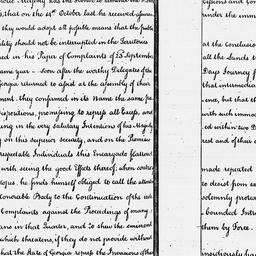 s, that on the 14th October last he received
they would adopt all possible means that the public
lity should not be interrupted in the Territories
ed in his Paper of Complaints of 25 September
ame year - soon after the worthy Delegates of the
eorgia returned to assist at the assembly of their
ment. they confirmed in its Name the same
Dispositions, promising to repress all keep, and
ing in the very salutary Intentions of his Majesty
y on this superior security, and on the Promise
respectable Individuals this Encargado flattered
with seeing the good Effects thereof; when contrary
Hopes, he finds himself obliged to call the attention
Honorable Body to the Continuation of the
Complaints against the Proceedings of many
ans in that Quarter, and to shew the eminent
which threatens, if they do not provide without
that the State of Georgia repress the Invasions of
under the imm
at the conclusion
all the Lands t
Days Journey f
that intermedia
one, but that th
with such immed
ed within two D
rest and of their
made repeated
to desist from ex
solemnly protes
bounded Intru
them by Force.